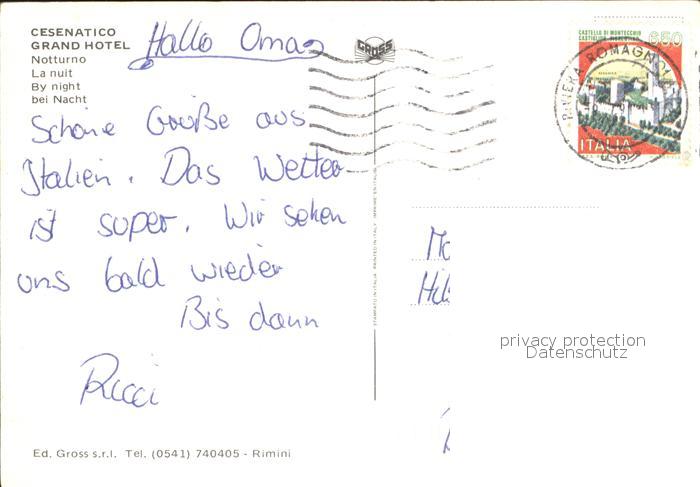 CESENATICO
GRAND HOTEL
Notturno
La nuit
By night
bei Nacht
Hallo Oma
GROSS
CASTELLO DI MONTECCHIO
CASTIGLION FIORENTINO
650
RIVIERA ROMAGNOLA
ITALIA
Schöne Grüße aus
Italien. Das Wetter
ist super. Wir sehen
uns bald wieder
Bis dann
Ricci
STAMPATO IN ITALIA - PRINTED IN ITALY - IMPRIMÉ EN ITALIE
privacy protection
Datenschutz
Ed. Gross s.r.l. Tel. (0541) 740405 - Rimini